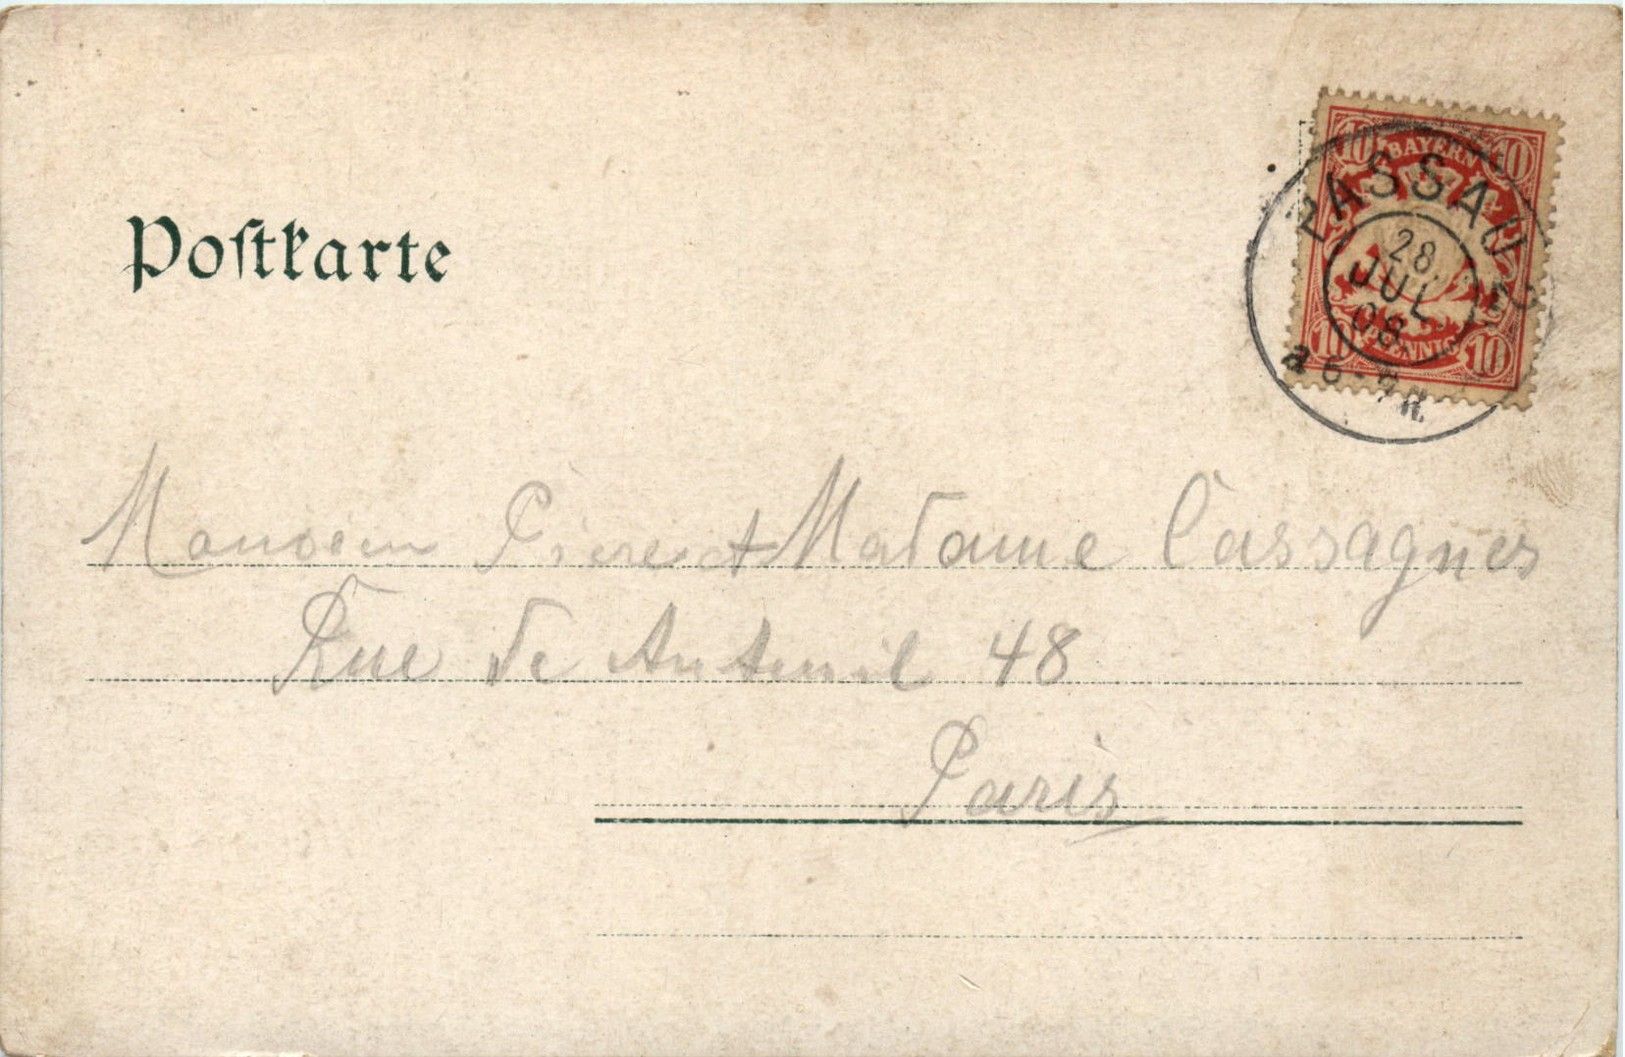 Postkarte
10 BAYERN 10
PASSAU 2
28.
JUL
08.
a 6-7 N.
10 PFENNIG 10
Pierre et Madame Cassagnes
Rue de Auteuil 48
Paris